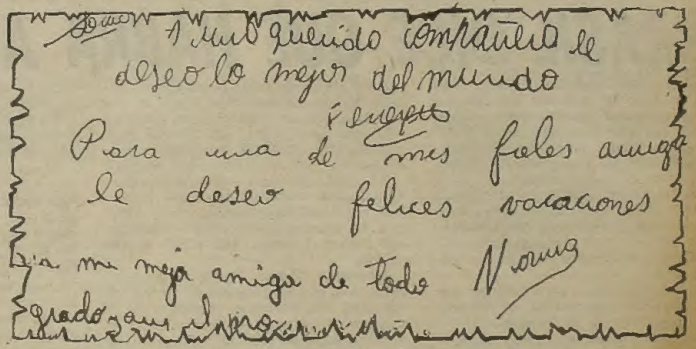 A mi querido compañero le
deseo lo mejor del mundo
Para una de mis fieles amiga
le deseo felices vacaciones
mi mejor amiga de todo Norma
grado